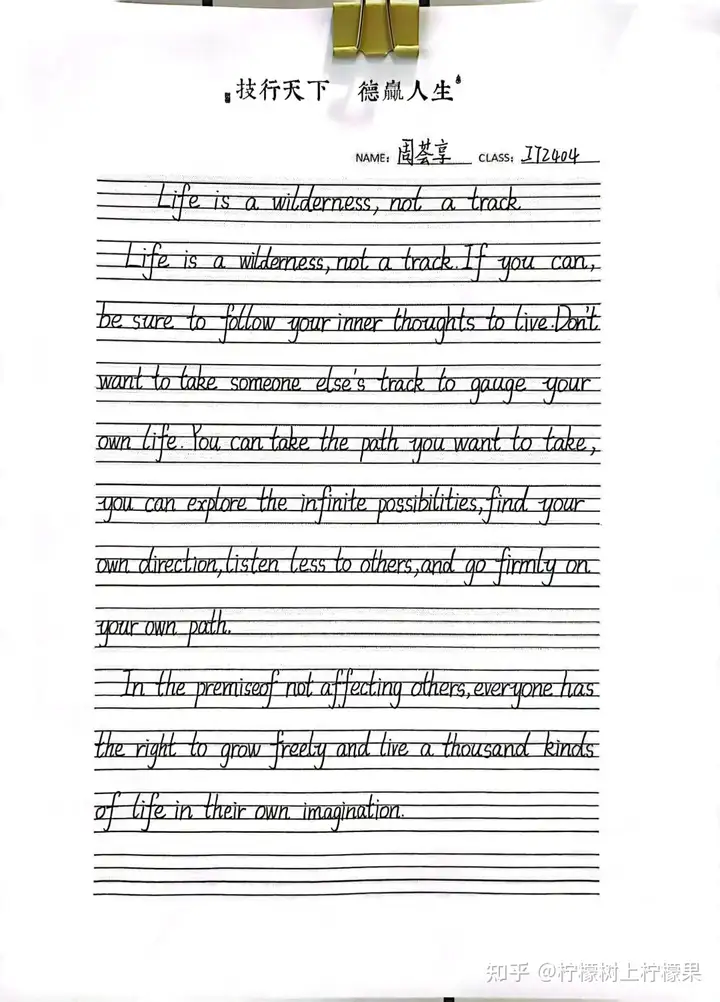 技行天下 德赢人生
NAME: 周荟享 CLASS: IT2404
Life is a wilderness, not a track
Life is a wilderness, not a track. If you can,
be sure to follow your inner thoughts to live. Don't
want to take someone else's track to gauge your
own life. You can take the path you want to take,
you can explore the infinite possibilities, find your
own direction, listen less to others, and go firmly on
your own path.
In the premiseof not affecting others, everyone has
the right to grow freely and live a thousand kinds
of life in their own imagination.
知乎 @柠檬树上柠檬果